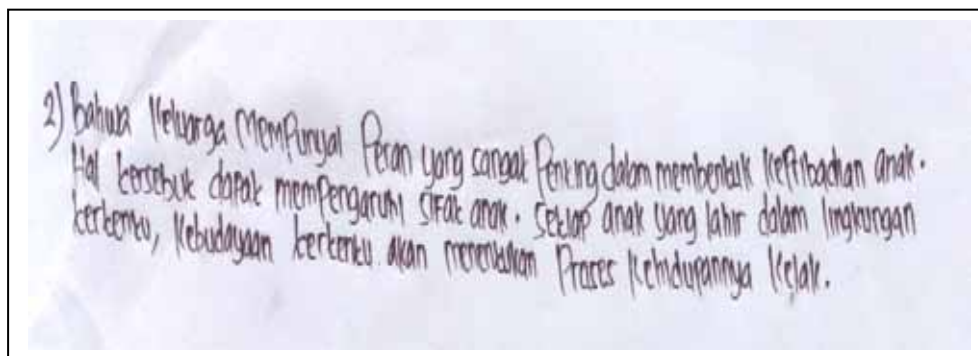 2) Bahwa Keluarga mempunyai Peran yang sangat Penting dalam membentuk kepribadian anak.
Hal tersebut dapat mempengaruhi sifat anak. Setiap anak yang lahir dalam lingkungan
tertentu, Kebudayaan tertentu akan meneruskan Proses kehidupannya kelak.